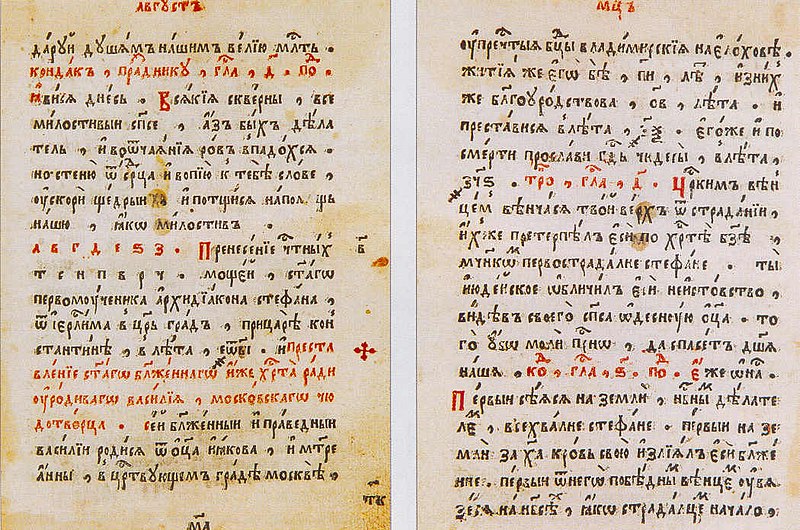 АВГУСТЪ
даруй душамъ нашимъ велїю млⷭ҇ть .
кондакъ , праⷥднику , гла , д҃ . поⷣ .
ꙗвисѧ днесь . Всѧкїѧ скверны , все
милостивыи сп҃се , азъ быхъ дѣла
тель , и воѿчаѧнїѧ ровъ впадохсѧ .
но стеню ѿ срⷣца и вопїю к тебѣ слове ,
ускори щедрыи и потщисѧ на помощь
нашю , ꙗкѡ милостивъ .
а в г д е ѕ з . Пренесенїе чⷭ҇тныхъ
в҃
т с и п в р ч . мощеи , ст҃агѡ
первомоученика архидїакона стефана ,
ѿ іерⷭ҇лима в цр҃ь градъ , при царѣ кон
стантинѣ , в лѣта , . и преста
вленїе ст҃агѡ бл҃женнагѡ иже хрⷭ҇та ради
уродиваго василїа , московскагѡ чю
дотворца . сеи бл҃женныи и праведныи
василїи родисѧ ѿ оц҃а иꙗкова , и мт҃ре
анны , в црⷭ҇твующемъ градѣ москвѣ ,
мцⷭ҇ъ
у преⷱтыѧ бц҃ы владимирскїѧ на елоховѣ .
житїѧ же егѡ бѣ , пи , лѣⷮ , из нихъ
же бл҃гоуродствова , ов , лѣта . и
престависѧ в лѣта , . егоже и по
смерти прослави гдⷭ҇ь чюдесы , в лѣта ,
зч҃ѕ . троⷫ , гла , д҃ . Црⷭ҇кимъ вѣн
цемъ вѣнчасѧ твои верхъ ѿ страданїи ,
ихже претерпѣлъ еси по хрⷭ҇тѣ бз҃ѣ ,
мчⷩ҇икѡмъ первострадалне стефане . ты
июдейское ѡбличилъ еси неистовство ,
видѣвъ своего сп҃са ѡдесную оц҃а . то
го оубѡ моли приснѡ , да спасетъ дш҃а
наша , коⷣ , гла , ѕ҃ . поⷣ . Еже ѡ на
Первыи сѣѧсѧ на земли , нбⷭ҇ныи дѣлате
лемъ , всехвалне стефане . первыи на зе
мли за ха кровь свою излїѧлъ еси бл҃же
не . первыи ѿ негѡ побѣды вѣнцемъ оувѧ
зесѧ на нбⷭ҇ѣ , ꙗкѡ страдалцемъ начало ,